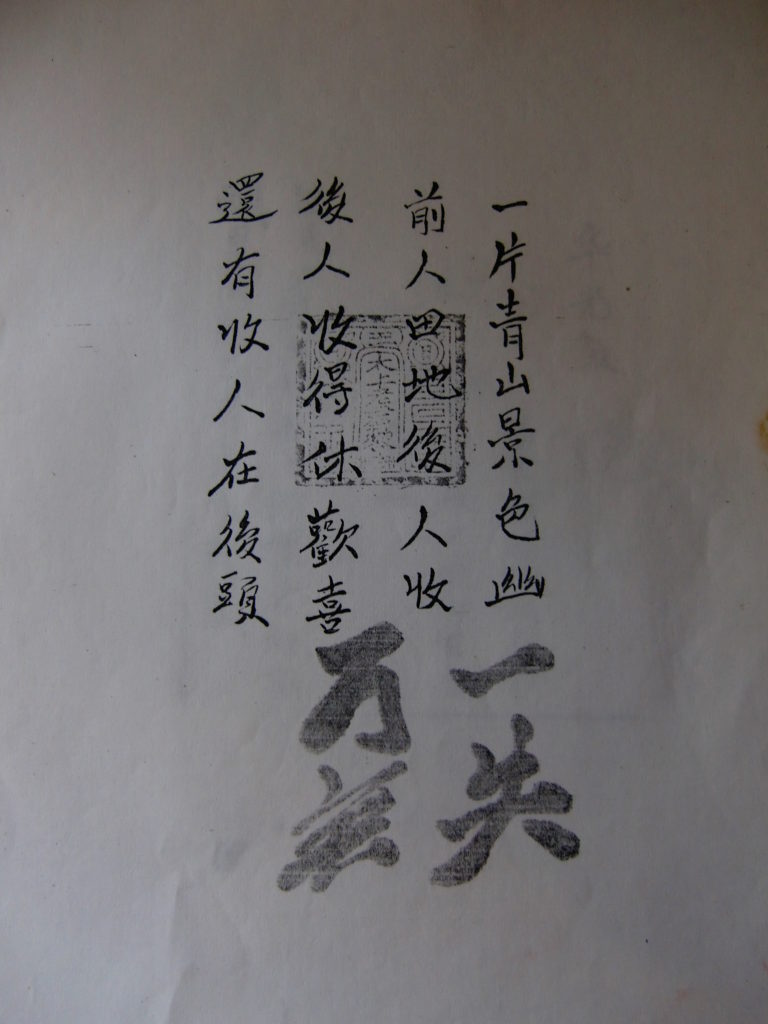 一片青山景色幽
前人田地後人收
後人收得休歡喜
還有收人在後頭
一失
万